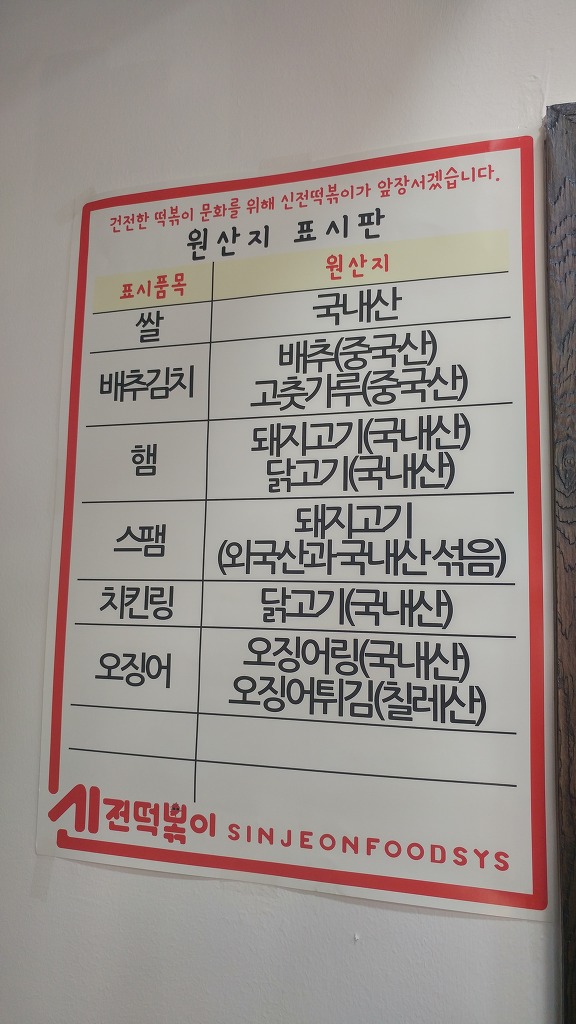 건전한 떡볶이 문화를 위해 신전떡볶이가 앞장서겠습니다.
원산지 표시판
표시품목 원산지
쌀 국내산
배추김치 배추(중국산)
고춧가루(중국산)
햄 돼지고기(국내산)
닭고기(국내산)
스팸 돼지고기
(외국산과 국내산 섞음)
치킨링 닭고기(국내산)
오징어 오징어링(국내산)
오징어튀김(칠레산)
신전떡볶이 SINJEONFOODSYS